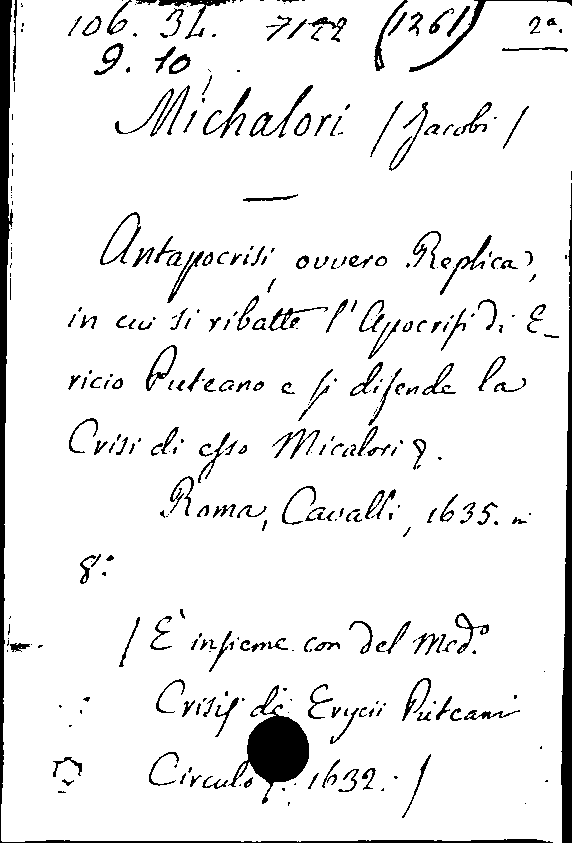 106. 34. 7122 (1261) 2ª.
9. 10
Michalori / Jacobi /
—
Antapocrisi, ovvero Replica,
in cui si ribatte l'Apocrisi di E-
ricio Puteano e si difende la
Crisi di esso Micalori &.
Roma, Cavalli, 1635. in
8:
/ È insieme con del Medº
Crisis de Erycii Puteani
Circulo &. 1632. /